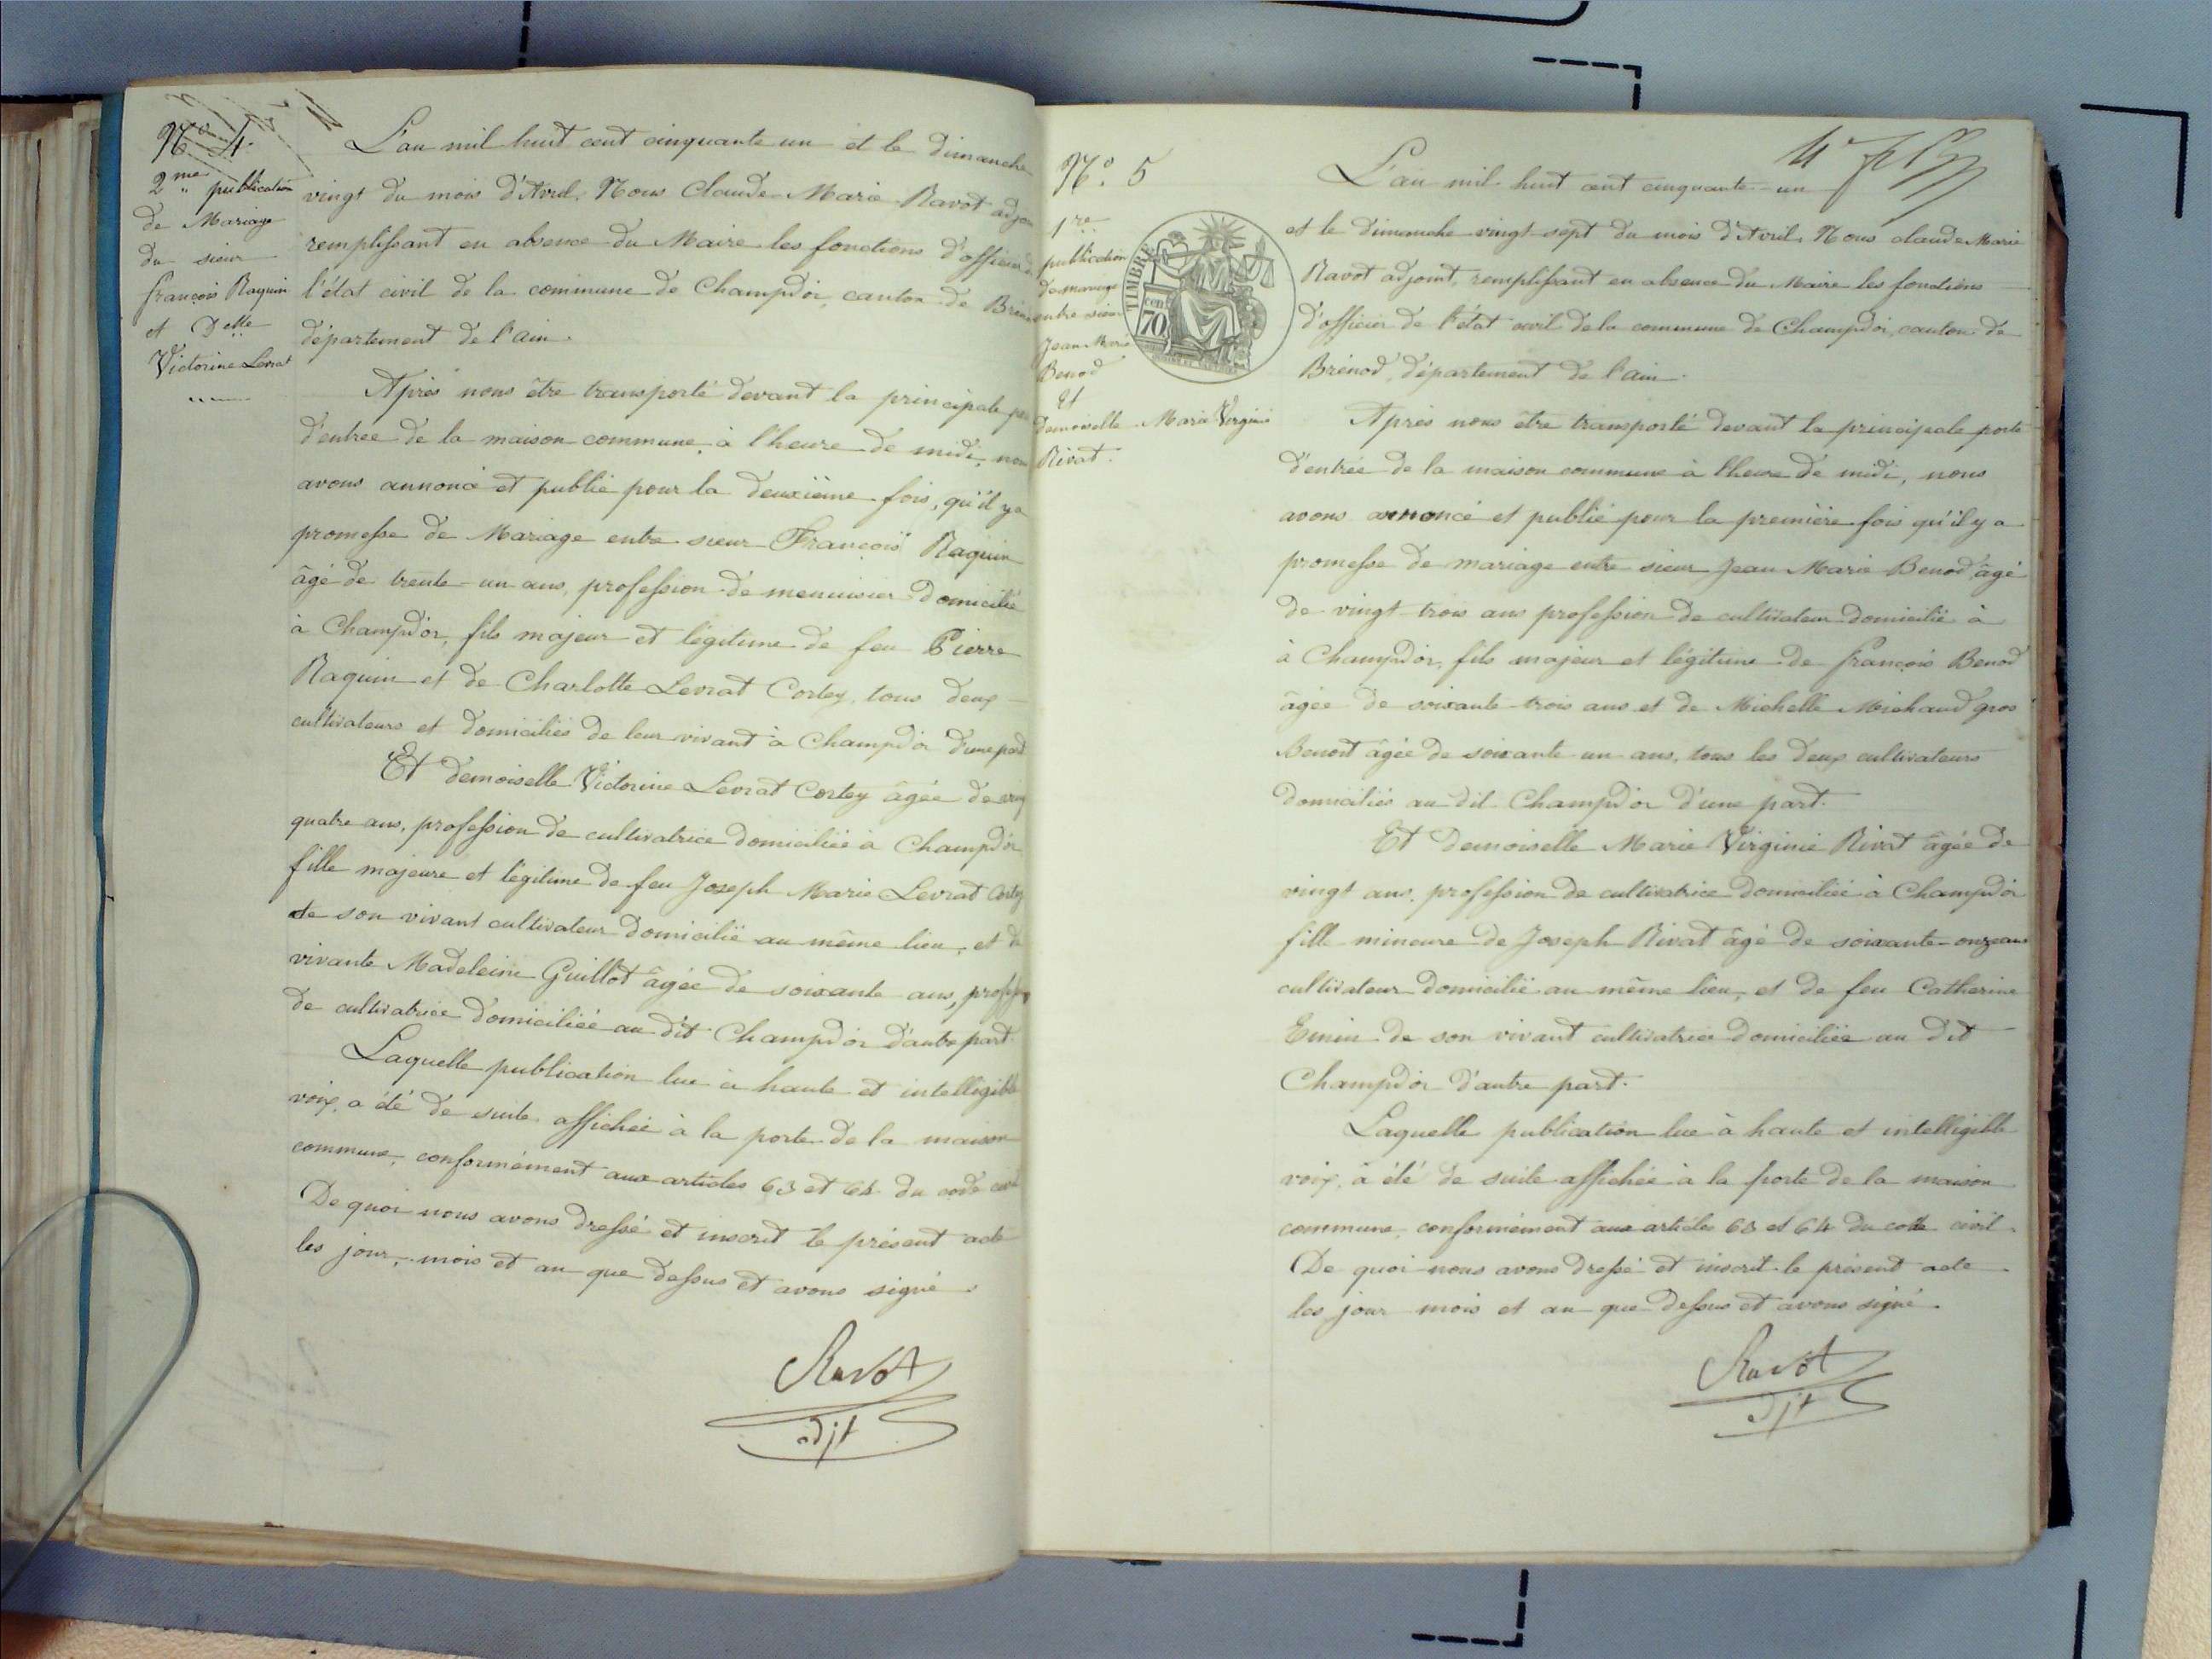 No 4.
2me publication
de Mariage
du sieur
françois Raquin
et Delle
Victorine Levrat
L'an mil huit cent cinquante un et le dimanche
vingt du mois d'Avril, Nous Claude Marie Ravot adjoi
remplissant en absence du Maire les fonctions d'officier de
l'état civil de la commune de Champdor, canton de Bréno
département de l'ain.
Après nous être transporté devant la principale por
d'entrée de la maison commune, à l'heure de midi, nous
avons annoncé et publié pour la deuxième fois, qu'il y a
promesse de Mariage entre sieur François Raquin
âgé de trente-un ans, profession de menuisier domicilié
à Champdor, fils majeur et légitime de feu Pierre
Raquin et de Charlotte Levrat Cortey, tous deux
cultivateurs et domiciliés de leur vivant à Champdor d'une part
Et demoiselle Victorine Levrat Cortey âgée de vingt
quatre ans, profession de cultivatrice domiciliée à Champdor
fille majeure et légitime de feu Joseph Marie Levrat Cortey
de son vivant cultivateur domicilié au même lieu, et de
vivante Madeleine Guillot âgée de soixante ans, profession
de cultivatrice domiciliée au dit Champdor d'autre part.
Laquelle publication lue à haute et intelligible
voix, a été de suite affichée à la porte de la maison
commune, conformément aux articles 63 et 64 du code civil
De quoi nous avons dressé et inscrit le présent acte
les jour, mois et an que dessus et avons signé.
Ravot
adjt
No. 5
1re
publication
de mariage
entre sieur
Jean Marie
Benod
Et
demoiselle Marie Virginie
Rivat.
TIMBRE
70
cen
4e
L'an mil huit cent cinquante-un
et le dimanche vingt sept du mois d'Avril, Nous claude Marie
Ravot adjoint, remplissant en absence du Maire les fonctions
d'officier de l'état civil de la commune de Champdor, canton de
Brénod, département de l'ain.
Après nous être transporté devant la principale porte
d'entrée de la maison commune à l'heure de midi, nous
avons annoncé et publié pour la première fois qu'il y a
promesse de mariage entre sieur Jean Marie Benod, âgé
de vingt trois ans profession de cultivateur domicilié à
à Champdor, fils majeur et légitime de françois Benod
âgée de soixante-trois ans et de Michelle Michaud gros
Benoit âgée de soixante un ans, tous les deux cultivateurs
domiciliés au dit Champdor d'une part.
Et Demoiselle Marie Virginie Rivat âgée de
vingt ans, profession de cultivatrice domiciliée à Champdor
fille mineure de Joseph Rivat âgé de soixante-onze ans
cultivateur domicilié au même lieu, et de feu Catherine
Emin de son vivant cultivatrice domiciliée au dit
Champdor d'autre part.
Laquelle publication lue à haute et intelligible
voix, a été de suite affichée à la porte de la maison
commune, conformément aux articles 63 et 64 du code civil.
De quoi nous avons dressé et inscrit le présent acte
les jour mois et an que dessus et avons signé.
Ravot
adjt